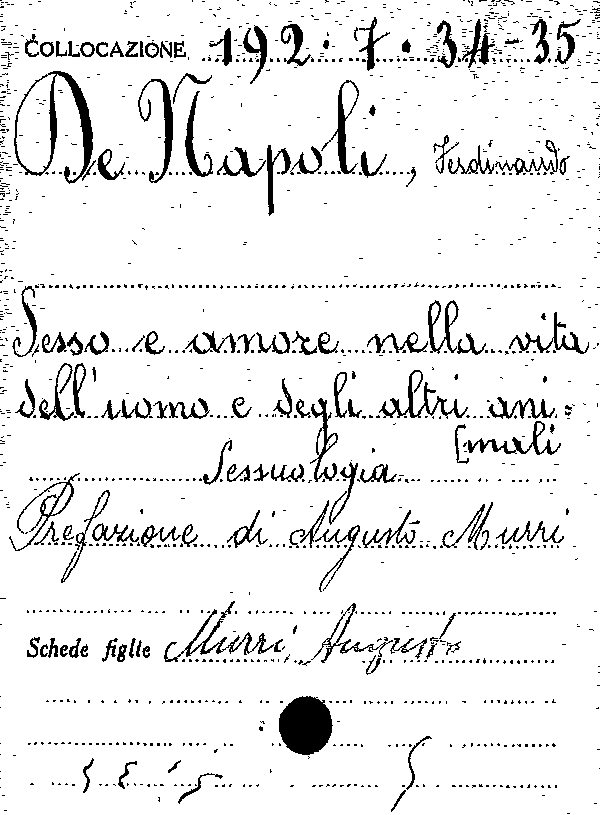 COLLOCAZIONE 192.7.34-35
De Napoli, Ferdinando
Sesso e amore nella vita
dell'uomo e degli altri ani=
[mali
Sessuologia
Prefazione di Augusto Murri
Schede figlie Murri, Augusto